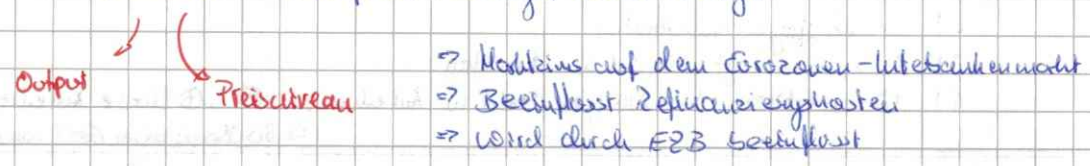 Output
Preisniveau
=> Marktzins auf dem Eurozonen-Interbankenmarkt
=> Beeinflusst Refinanzierungskosten
=> wird durch EZB beeinflusst